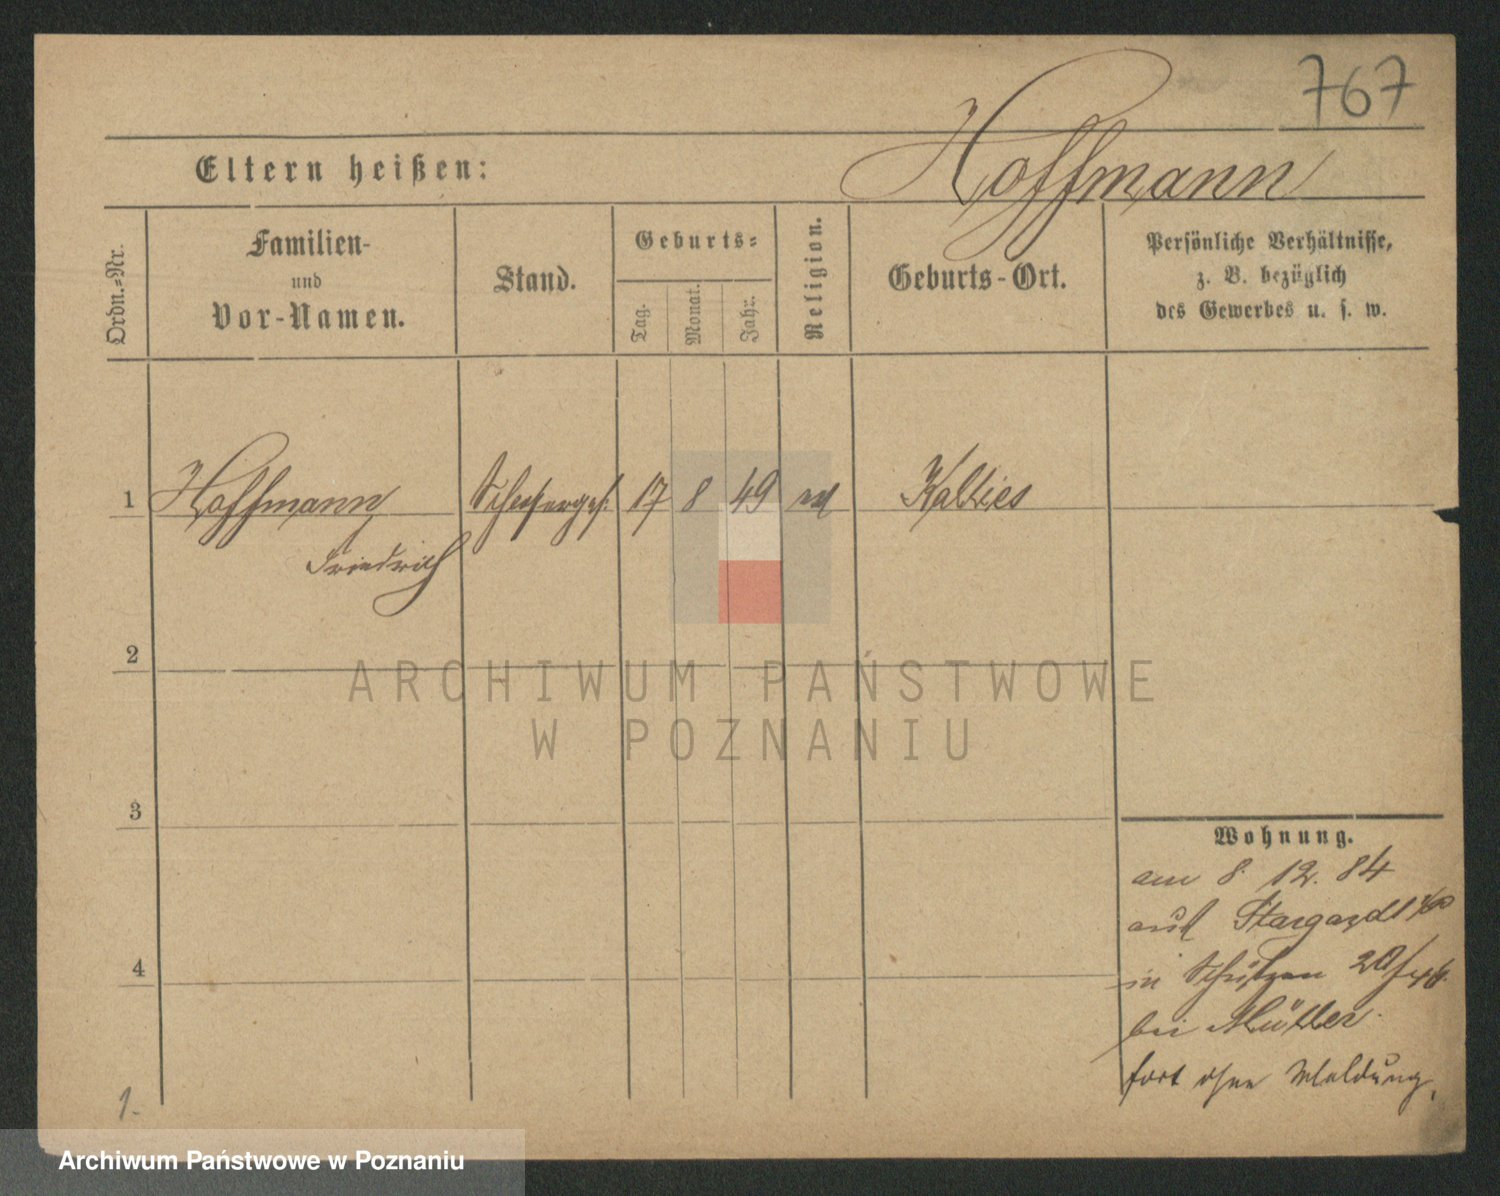 767
Hoffmann
Eltern heißen:
Ordn.-Nr.
Familien-
und
Vor-Namen.
Stand.
Geburts-
Tag.
Monat.
Jahr.
Religion.
Geburts-Ort.
Persönliche Verhältnisse,
z. B. bezüglich
des Gewerbes u. s. w.
1 Hoffmann 17 8 49 Kallies
Friedrich
2
ARCHIWUM PAŃSTWOWE
W POZNANIU
3
4
Wohnung.
am 8. 12. 84
aus Stargardt
in Schützen
bei Müller
fort ohne Meldung.
1.
Archiwum Państwowe w Poznaniu